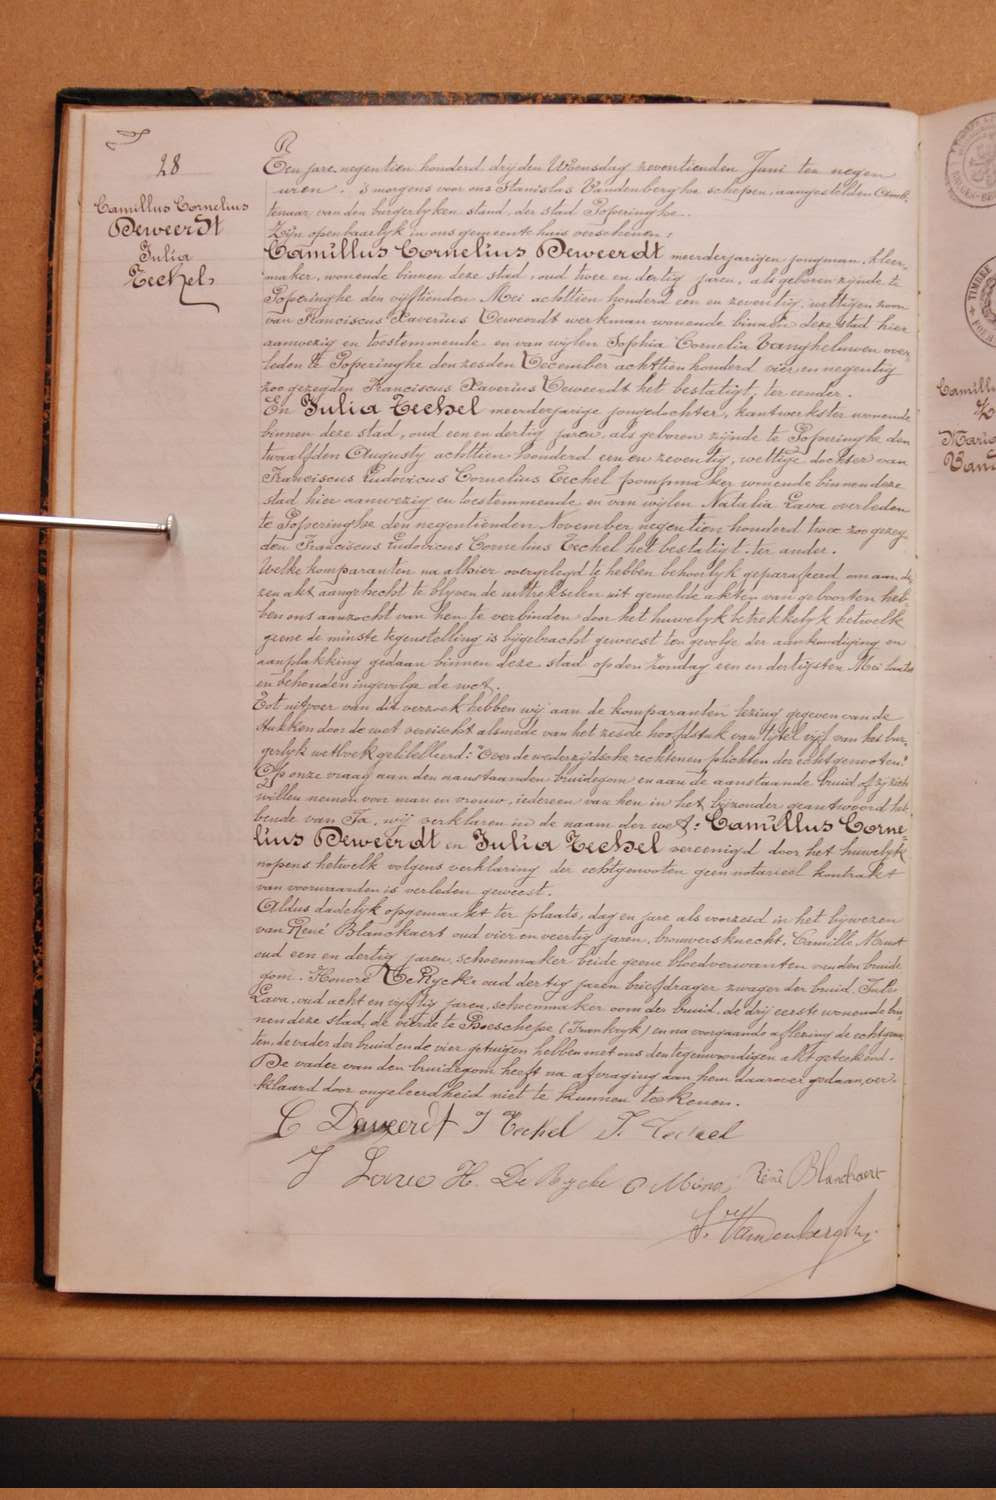 28
Camillus Cornelius
Deweerdt
Julia
Techel
Ten jare negentien honderd drij den Woensdag zeventienden Juni ten negen
uren 's morgens voor ons Stanislas Vandenberghe schepen, aangestelden Amb-
tenaar van den burgerlyken stand, der stad Poperinghe.
Zijn openbaarlyk in ons gemeente huis verschenen:
Camillus Cornelius Deweerdt meerderjarigen jongman, kleer-
maker, wonende binnen deze stad, oud twee en dertig jaren, als geboren zijnde te
Poperinghe den vijftienden Mei achttien honderd een en zeventig, wettigen zoon
van Franciscus Xaverius Deweerdt werkman wonende binnen deze stad hier
aanwezig en toestemmende en van wijlen Sophia Cornelia Vangheluwen over-
leden te Poperinghe den zesden December achttien honderd vier en negentig
zoo gezegden Franciscus Xaverius Deweerdt het bestatigt, ter eender.
En Julia Techel meerderjarige jongedochter, kantwerkster wonende
binnen deze stad, oud een en dertig jaren, als geboren zijnde te Poperinghe den
twaalfden Augusty achttien honderd een en zeventig, wettige dochter van
Franciscus Ludovicus Cornelius Techel pompmaker wonende binnen deze
stad hier aanwezig en toestemmende en van wijlen Natalia Lava overleden
te Poperinghe den negentienden November negentien honderd twee zoo gezeg-
den Franciscus Ludovicus Cornelius Techel het bestatigt, ter ander.
Welke komparanten na alhier overgelegd te hebben behoorlyk geparafeerd om aan de-
zen akt aangehecht te blyven de uittrekselen uit gemelde akten van geboorten heb-
ben ons aanzocht van hen te verbinden door het huwelyk betrekkelyk hetwelk
geene de minste tegenstelling is bygebracht geweest ten gevolge der aankondiging en
aanplakking gedaan binnen deze stad op den Zondag een en dertigsten Mei laatst
en behouden ingevolge de wet.
Tot uitvoer van dit verzoek hebben wij aan de komparanten lezing gegeven van de
stukken door de wet vereischt alsmede van het zesde hoofdstuk van tytel vyf van het bur-
gerlyk wetboek getiteleerd: "Over de wederzijdsche rechten en plichten der echtgenooten."
Op onze vraag aan den aanstaanden bruidegom en aan de aanstaande bruid of zij zich
willen nemen voor man en vrouw, iedereen van hen in het byzonder geantwoord heb-
bende van Ja, wij verklaren in de naam der wet: Camillus Corne-
lius Deweerdt en Julia Techel vereenigd door het huwelyk
nopens hetwelk volgens verklaring der echtgenooten geen notarieel kontrakt
van voorwaarden is verleden geweest.
Aldus dadelyk opgemaakt ter plaats, dag en jare als voorzeid in het bywezen
van René Blanckaert oud vier en veertig jaren, brouwersknecht, Camille
oud een en dertig jaren, schoenmaker beide geene bloedverwanten van den bruide-
gom, Honoré DeRycke oud dertig jaren briefdrager zwager der bruid, Jules
Lava, oud acht en vyftig jaren, schoenmaker oom der bruid, de drij eerste wonende bin-
nen deze stad, de vierde te Boeschepe (Frankryk) en na voorgaande aflezing de echtgenoo-
ten, de vader der bruid en de vier getuigen hebben met ons den tegenwoordigen akt geteekend.
De vader van den bruidegom heeft na afvraging aan hem daarover gedaan, ver-
klaard door ongeleerdheid niet te kunnen teekenen.
C Deweerdt J Techel F. Techel
J Lava H. De Rycke C René Blanckaert
S. Vandenberghe
Camillu
Maria